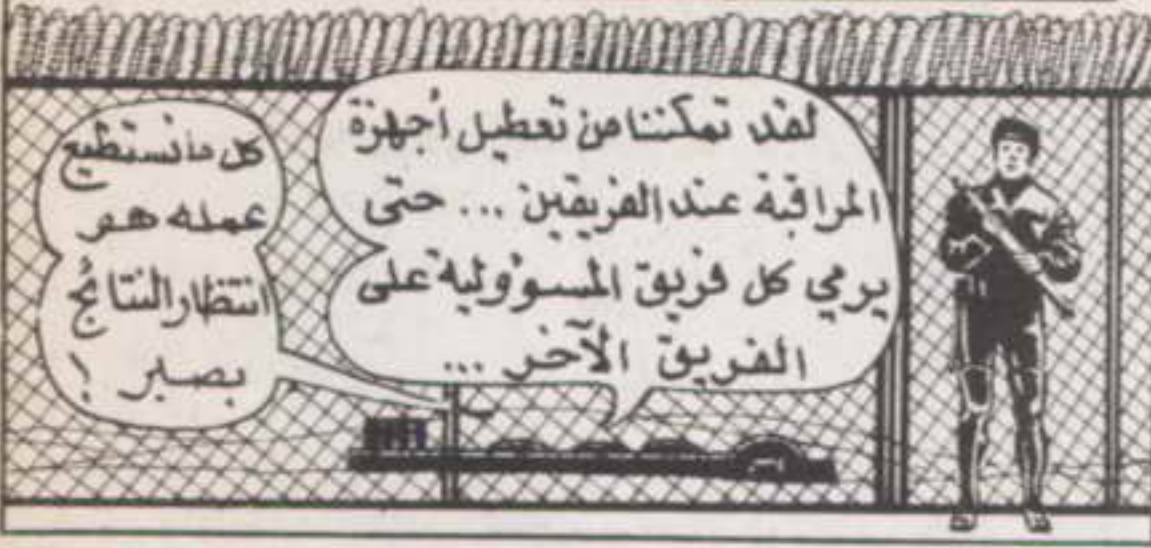 لقد تمكننا من تعطيل أجهزة
المراقبة عند الفريقين ... حتى
يرمي كل فريق المسؤولية على
الفريق الآخر ...
كل ما نستطيع
عمله هو
انتظار النتائج
بصبر !